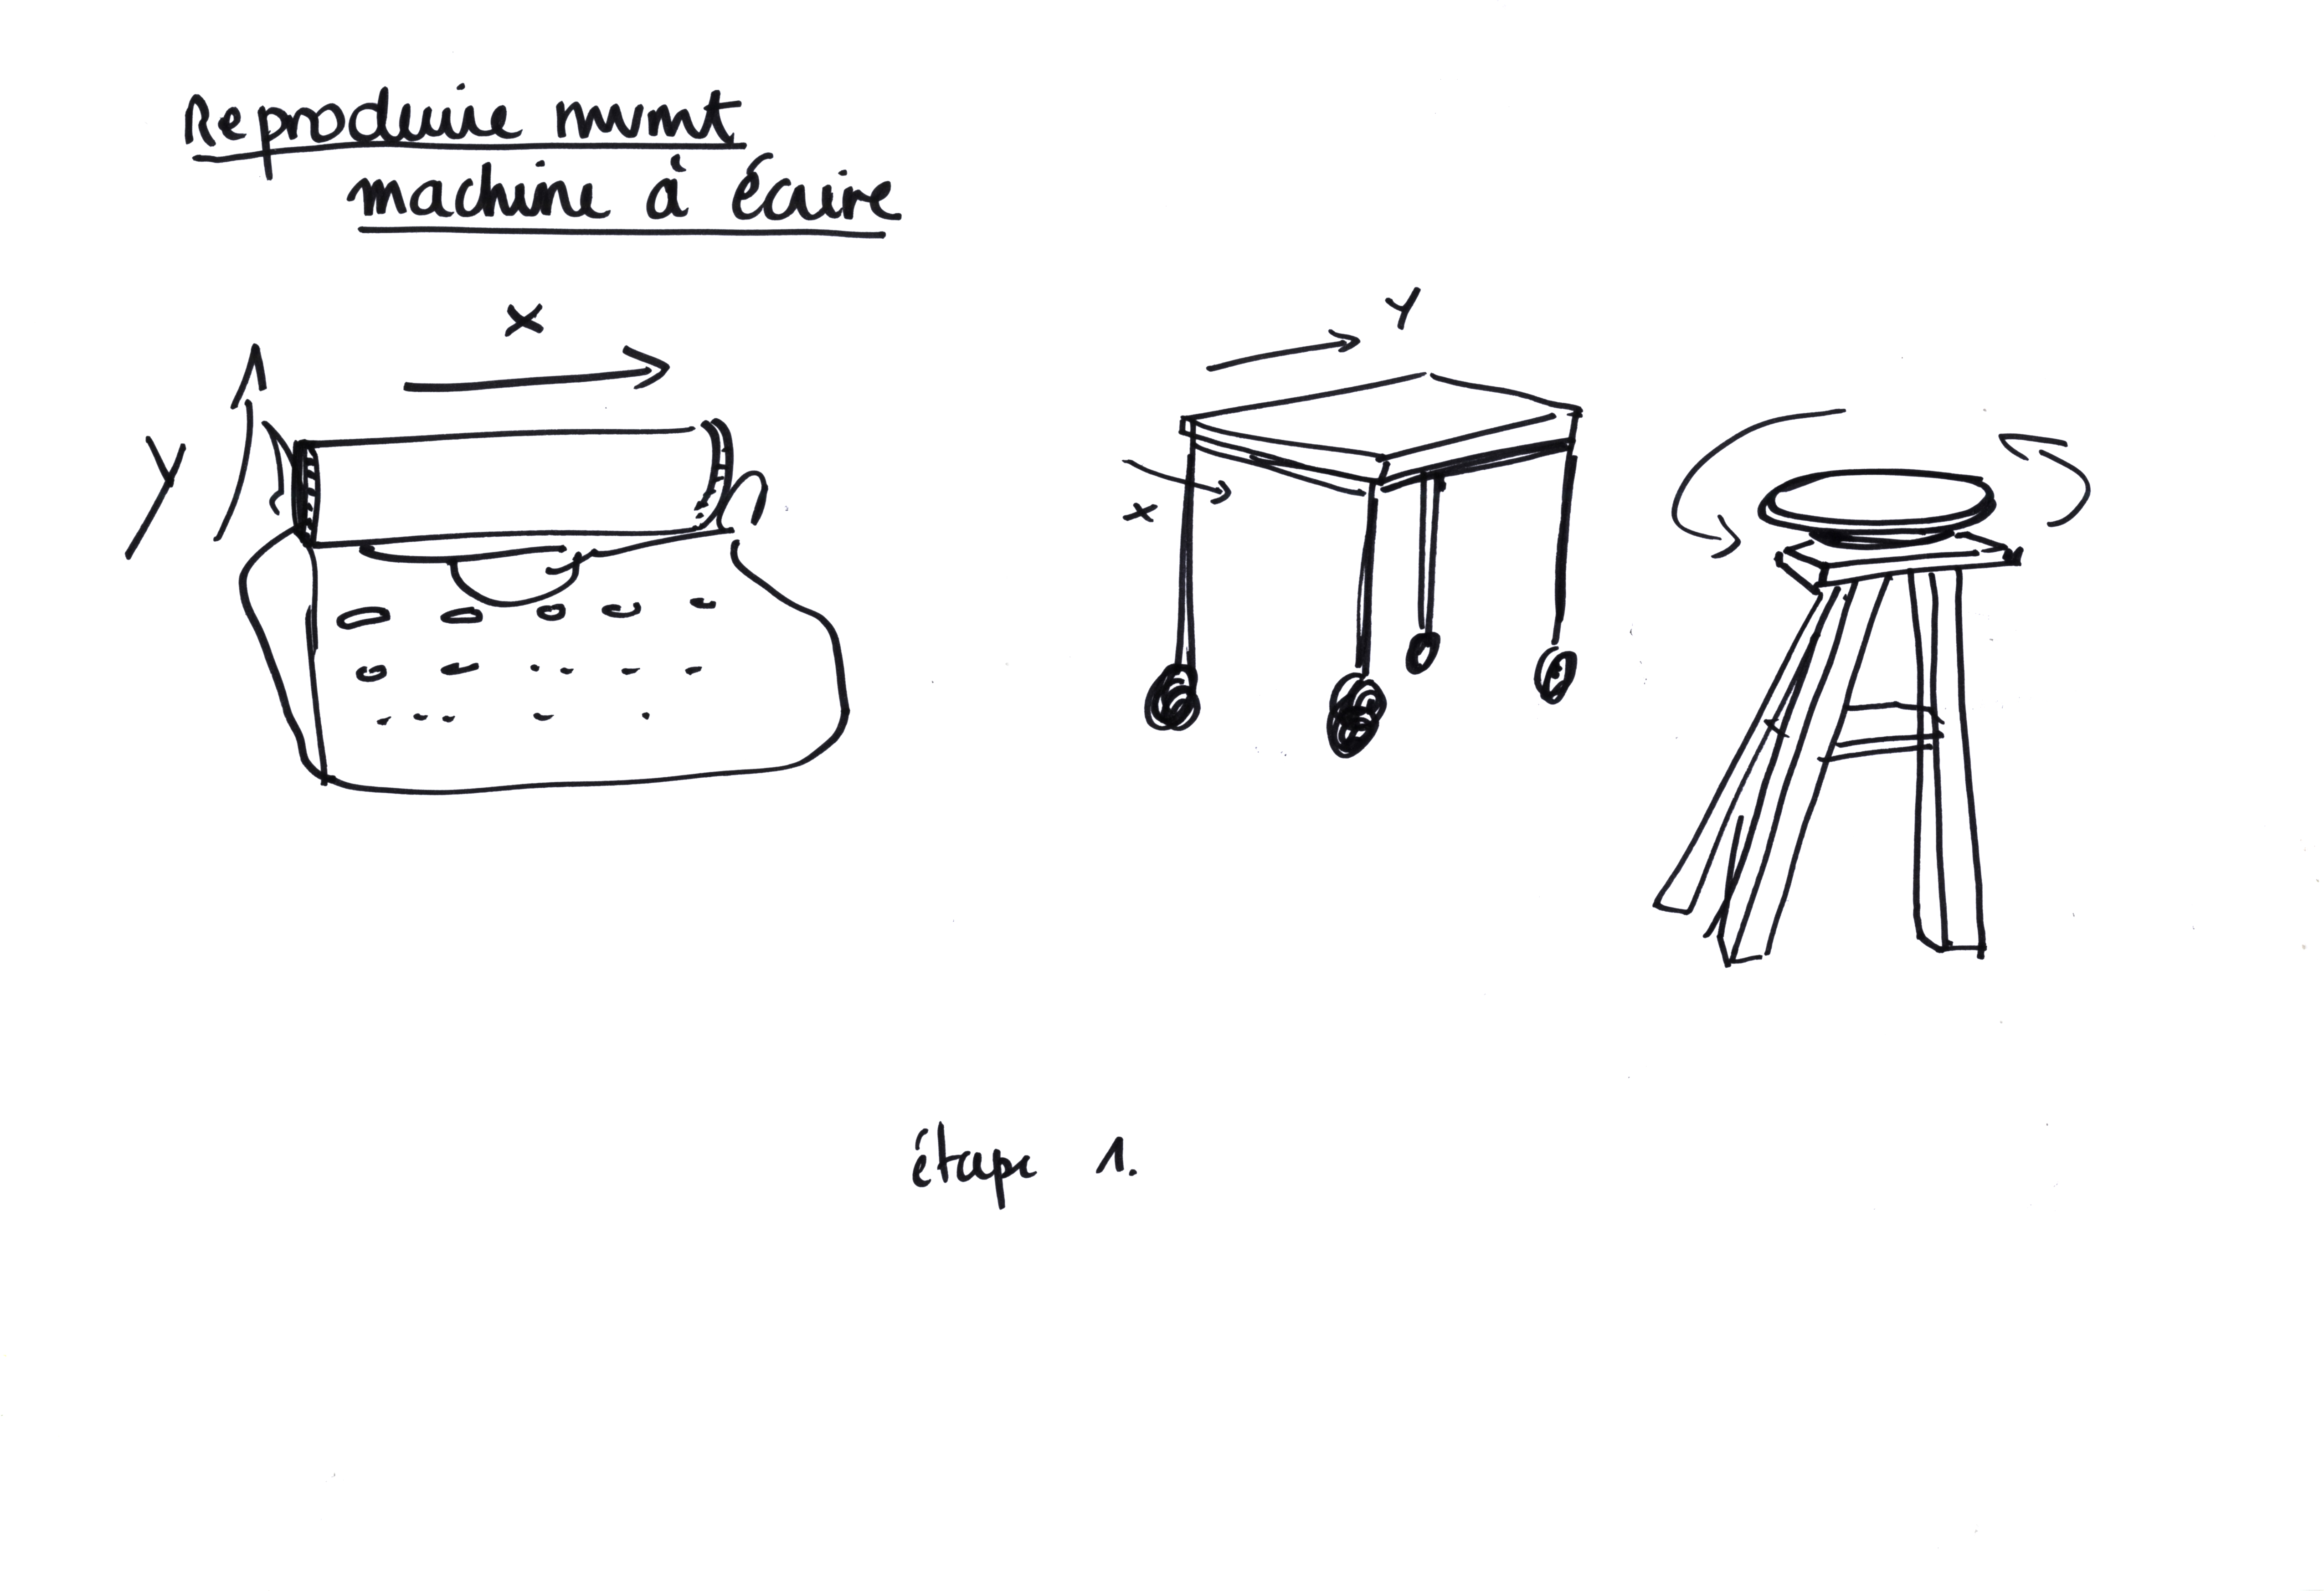 Reproduire mvmt
machine à écrire
X
Y
Y
X
étape 1.